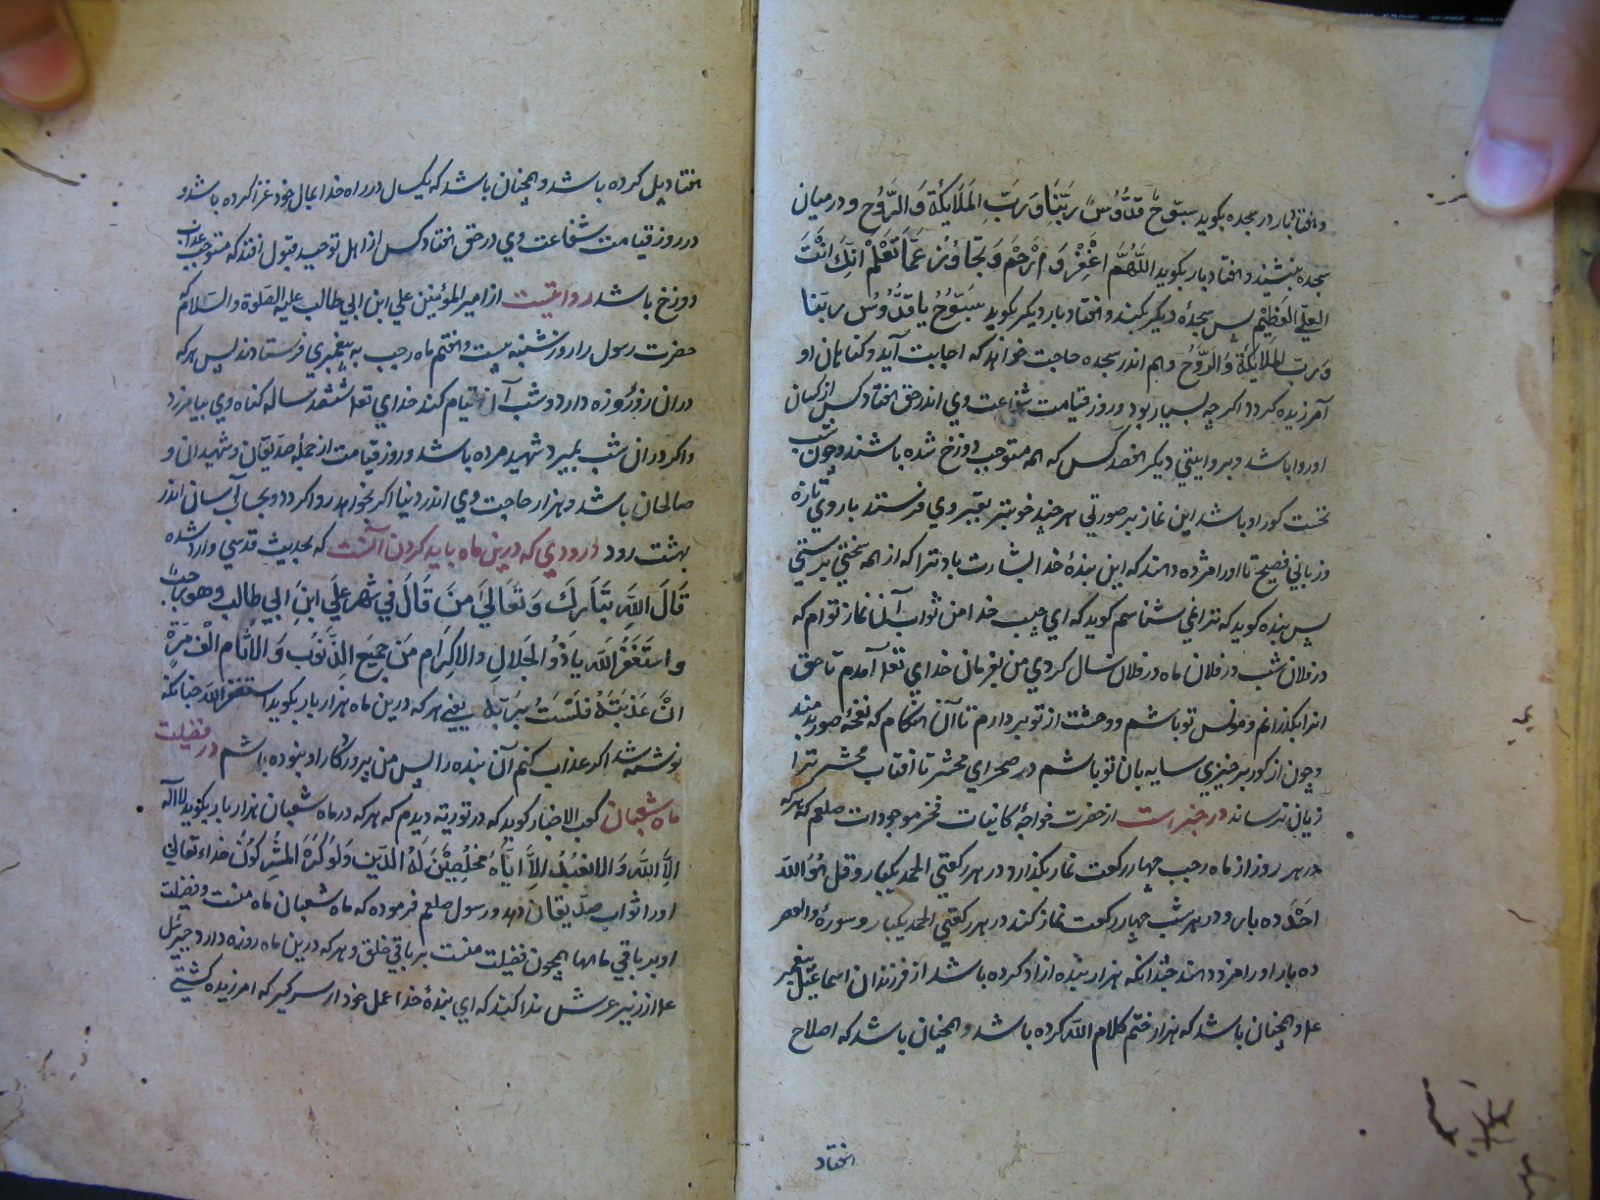 و هفتاد بار در سجده بکوید سبّوحٌ قدُّوسٌ ربّنا و ربّ الملایکة و الرّوح و در میان
سجده بنشیند و هفتاد بار بکوید اللّهمّ اغفر و ارحم و تجاوز عمّا تعلم انّک انت
العلی العظیم پس سجدهٔ دیکر بکند و هفتاد بار دیکر بکوید سبّوح یا قدّوس ربّنا
و ربّ الملایکة و الرّوح و هم اندر سجده حاجت خواهد که اجابت آید و کناهان او
آمرزیده کردد اکر چه بسیار بود و روز قیامت شفاعت وی اندر حق هفتاد کس از کسان
او روا باشد و بروایتی دیکر هفصد کس که همه متوجب دوزخ شده باشند و چون شب
نخست کور او باشد این نماز بر صورتی هر چند خوبتر بقبر وی فرستند با روی تازه
و زبانی فصیح تا او را مژده دهند که این بندهٔ خدا بشارت باد ترا که از همه سختی برستی
پس بنده کوید که ترا نمی شناسم کوید که ای حبیب خدا من ثواب آن نماز توام که
در فلان شب در فلان ماه در فلان سال کردی من بفرمان خدای تعلا آمدم تا حق
ترا بکذرانم و مونس تو باشم و وحشت از تو بردارم تا آن هنکام که نفخهٔ صور دمند
و چون از کور برخیزی سایه بان تو باشم در صحرای محشر تا آفتاب محشر ترا
زیان نرساند در خبر است از حضرت خواجهٔ کاینات فخر موجودات صلعم که هر که
در هر روز از ماه رجب چهار رکعت نماز بکذارد و در هر رکعتی الحمد یکبار و قل هو اللّه
احد ده بار و در هر شب چهار رکعت نماز کند در هر رکعتی الحمد یکبار و سورهٔ والعصر
ده بار او را مزد دهند چندانکه هزار بنده ازاد کرده باشد از فرزندان اسماعیل پیغمبر
ع م و همچنان باشد که هزار ختم کلام اللّه کرده باشد و همچنان باشد که اصلاح
هفتاد
هفتاد پل کرده باشد و همچنان باشد که یکسال در راه خدا بمال خود غزا کرده باشد و
در روز قیامت شفاعت وی در حق هفتاد کس از اهل توحید قبول افتد که متوجب عذاب
دوزخ باشد روایتست از امیر المؤمنین علی ابن ابی طالب علیه الصلوة والسلام که
حضرت رسول را روز شنبه بیست و هفتم ماه رجب به پیغمبری فرستادند پس هر که
در ان روز روزه دارد و شب آن قیام کند خدای تعلا ششصد ساله کناه وی بیامرزد
و اکر در ان شب بمیرد شهید مرده باشد و روز قیامت از جملهٔ صدیقان و شهیدان و
صالحان باشد و هزار حاجت وی اندر دنیا اکر بخواهد روا کردد و بحساب آسان اندر
بهشت رود درودی که درین ماه باید کردن آنست که بحدیث قدسی وارد شده
قال اللّه تبارک و تعالی من قال فی شهر علی ابن ابی طالب و هو رجب
و استغفر اللّه یا ذو الجلال والاکرام من جمیع الذّنوب و الاثام الف مرّة
انّ عذبته فلست بربّه یعنی هر که درین ماه هزار بار بکوید استغفر اللّه چنانکه
نوشته شد اکر عذاب کنم آن بنده را پس من پروردکار او نبوده باشم در فضیلت
ماه شعبان کعب الاخبار کوید که در توریته دیدم که هر که در ماه شعبان هزار بار بکوید لا اله
الّا اللّه و لا نعبد الّا ایّاه مخلصین له الدّین و لو کره المشرکون خداء تعالی
او را ثواب صدّیقان دهد و رسول صلعم فرموده که ماه شعبان ماه منست و فضیلت
او بر باقی ماهها همچون فضیلت منست بر باقی خلق و هر که درین ماه روزه دارد جبرئیل
ع م از زیر عرش ندا کند که ای بندهٔ خدا عمل خود از سر کیر که امرزیده کشتی